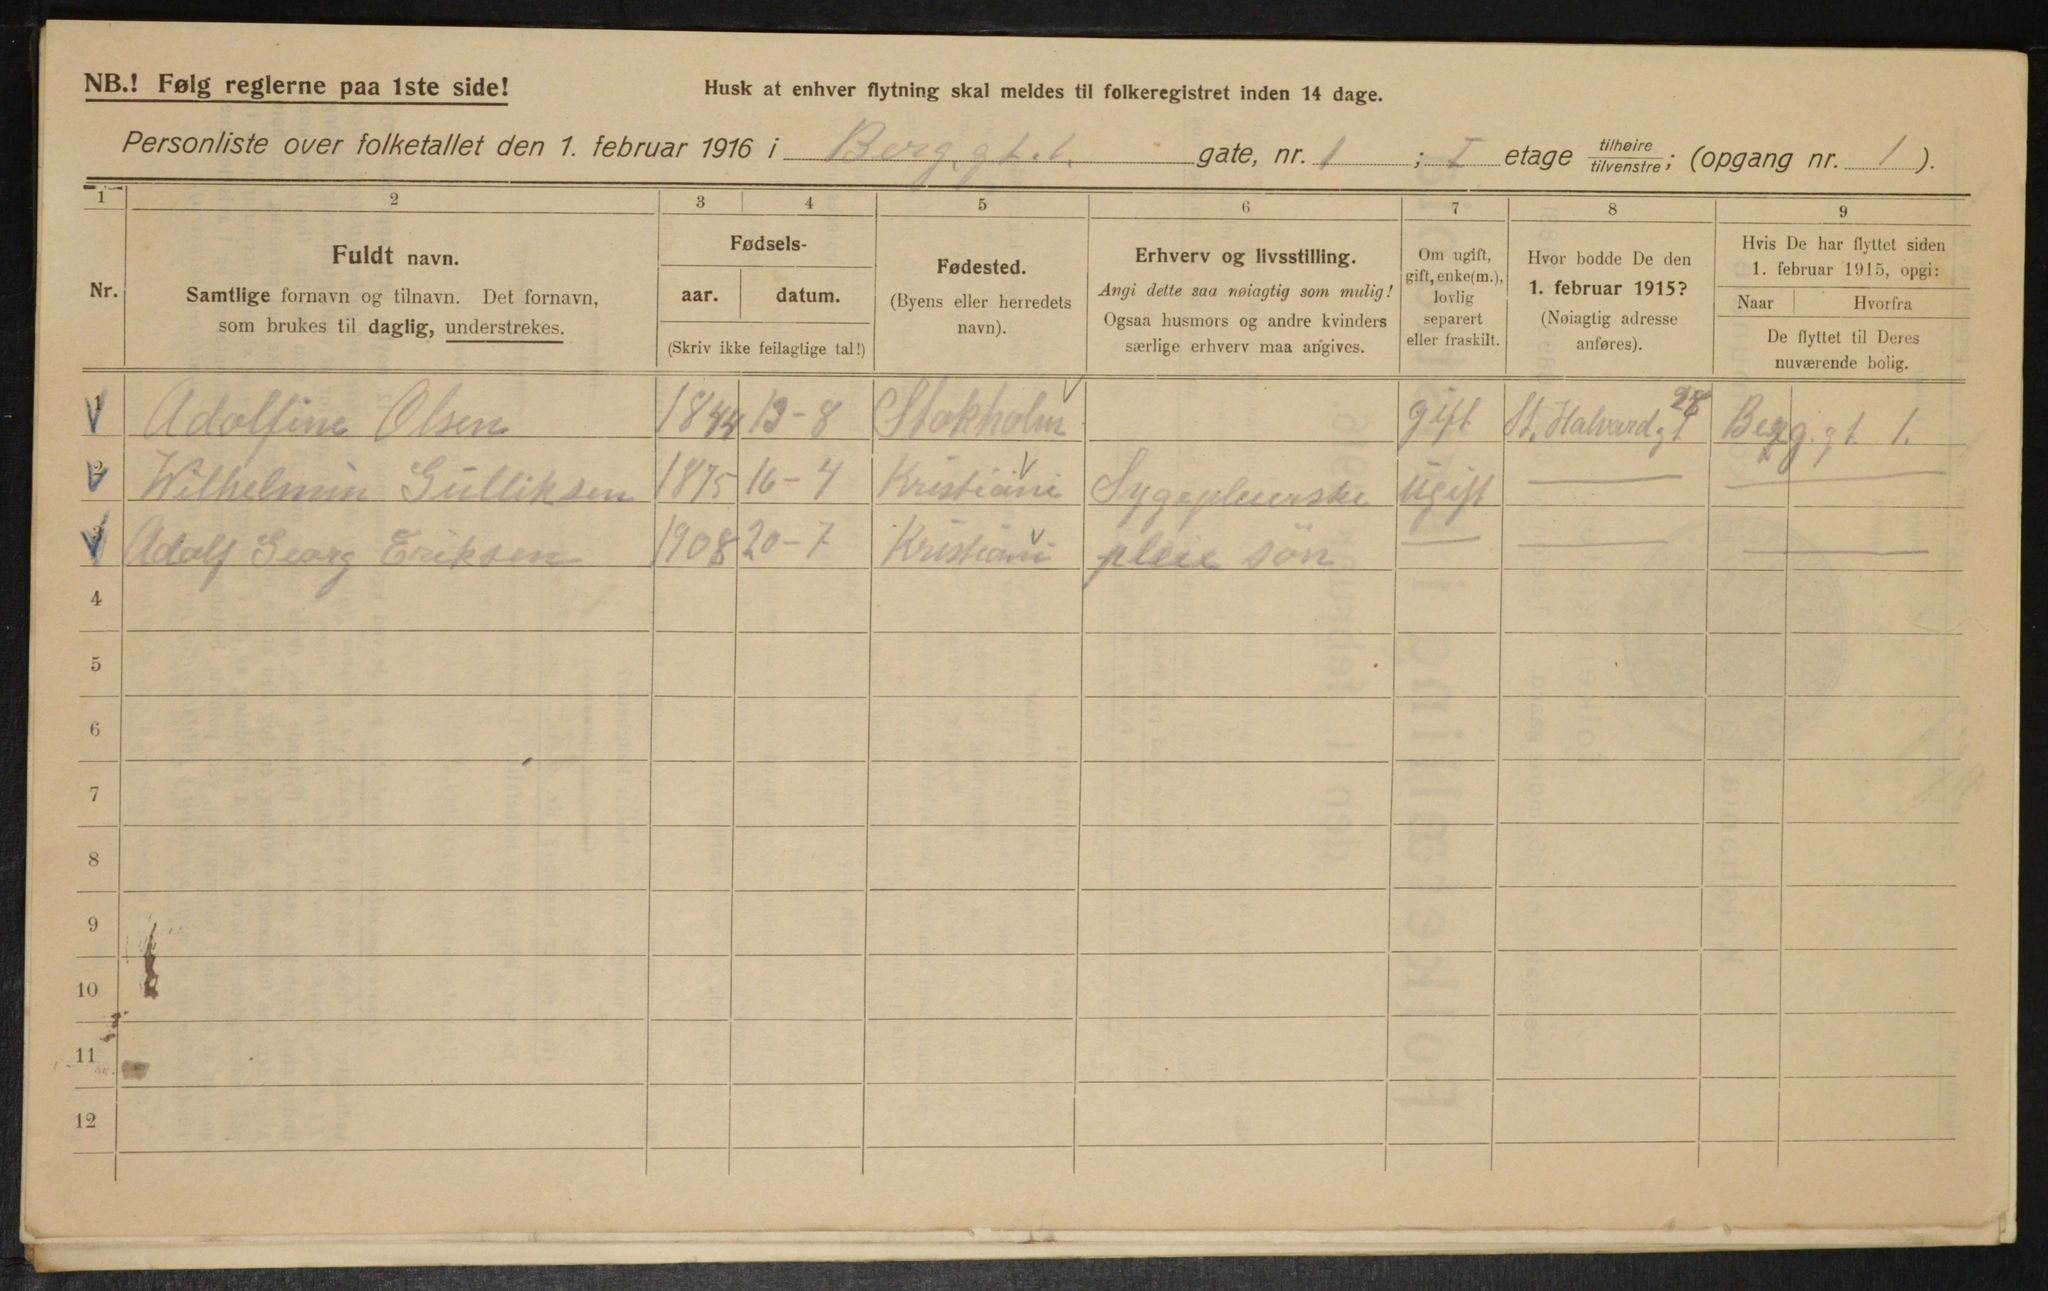 NB.! Følg reglerne paa 1ste side!
Husk at enhver flytning skal meldes til folkeregistret inden 14 dage.
Personliste over folketallet den 1. februar 1916 i Berg gt. 1. gate, nr. 1 ; I etage tilhøire/tilvenstre; (opgang nr. 1 ).
1 2 3 4 5 6 7 8 9
Nr.
Fuldt navn.
Samtlige fornavn og tilnavn. Det fornavn,
som brukes til daglig, understrekes.
Fødsels-
aar. datum.
(Skriv ikke feilagtige tal!)
Fødested.
(Byens eller herredets
navn).
Erhverv og livsstilling.
Angi dette saa nøiagtig som mulig!
Ogsaa husmors og andre kvinders
særlige erhverv maa angives.
Om ugift,
gift, enke(m.),
lovlig
separert
eller fraskilt.
Hvor bodde De den
1. februar 1915?
(Nøiagtig adresse
anføres).
Hvis De har flyttet siden
1. februar 1915, opgi:
Naar Hvorfra
De flyttet til Deres
nuværende bolig.
1 Adolfine Olsen 1844 13-8 Stokholm gift St. Halvard gt 28 Berg gt 1.
2 Wilhelmin Gulliksen 1875 16-4 Kristiani Sygepleierske ugift —
3 Adolf Georg Eriksen 1908 20-7 Kristiani pleie søn — — —
4
5
6
7
8
9
10
11
12